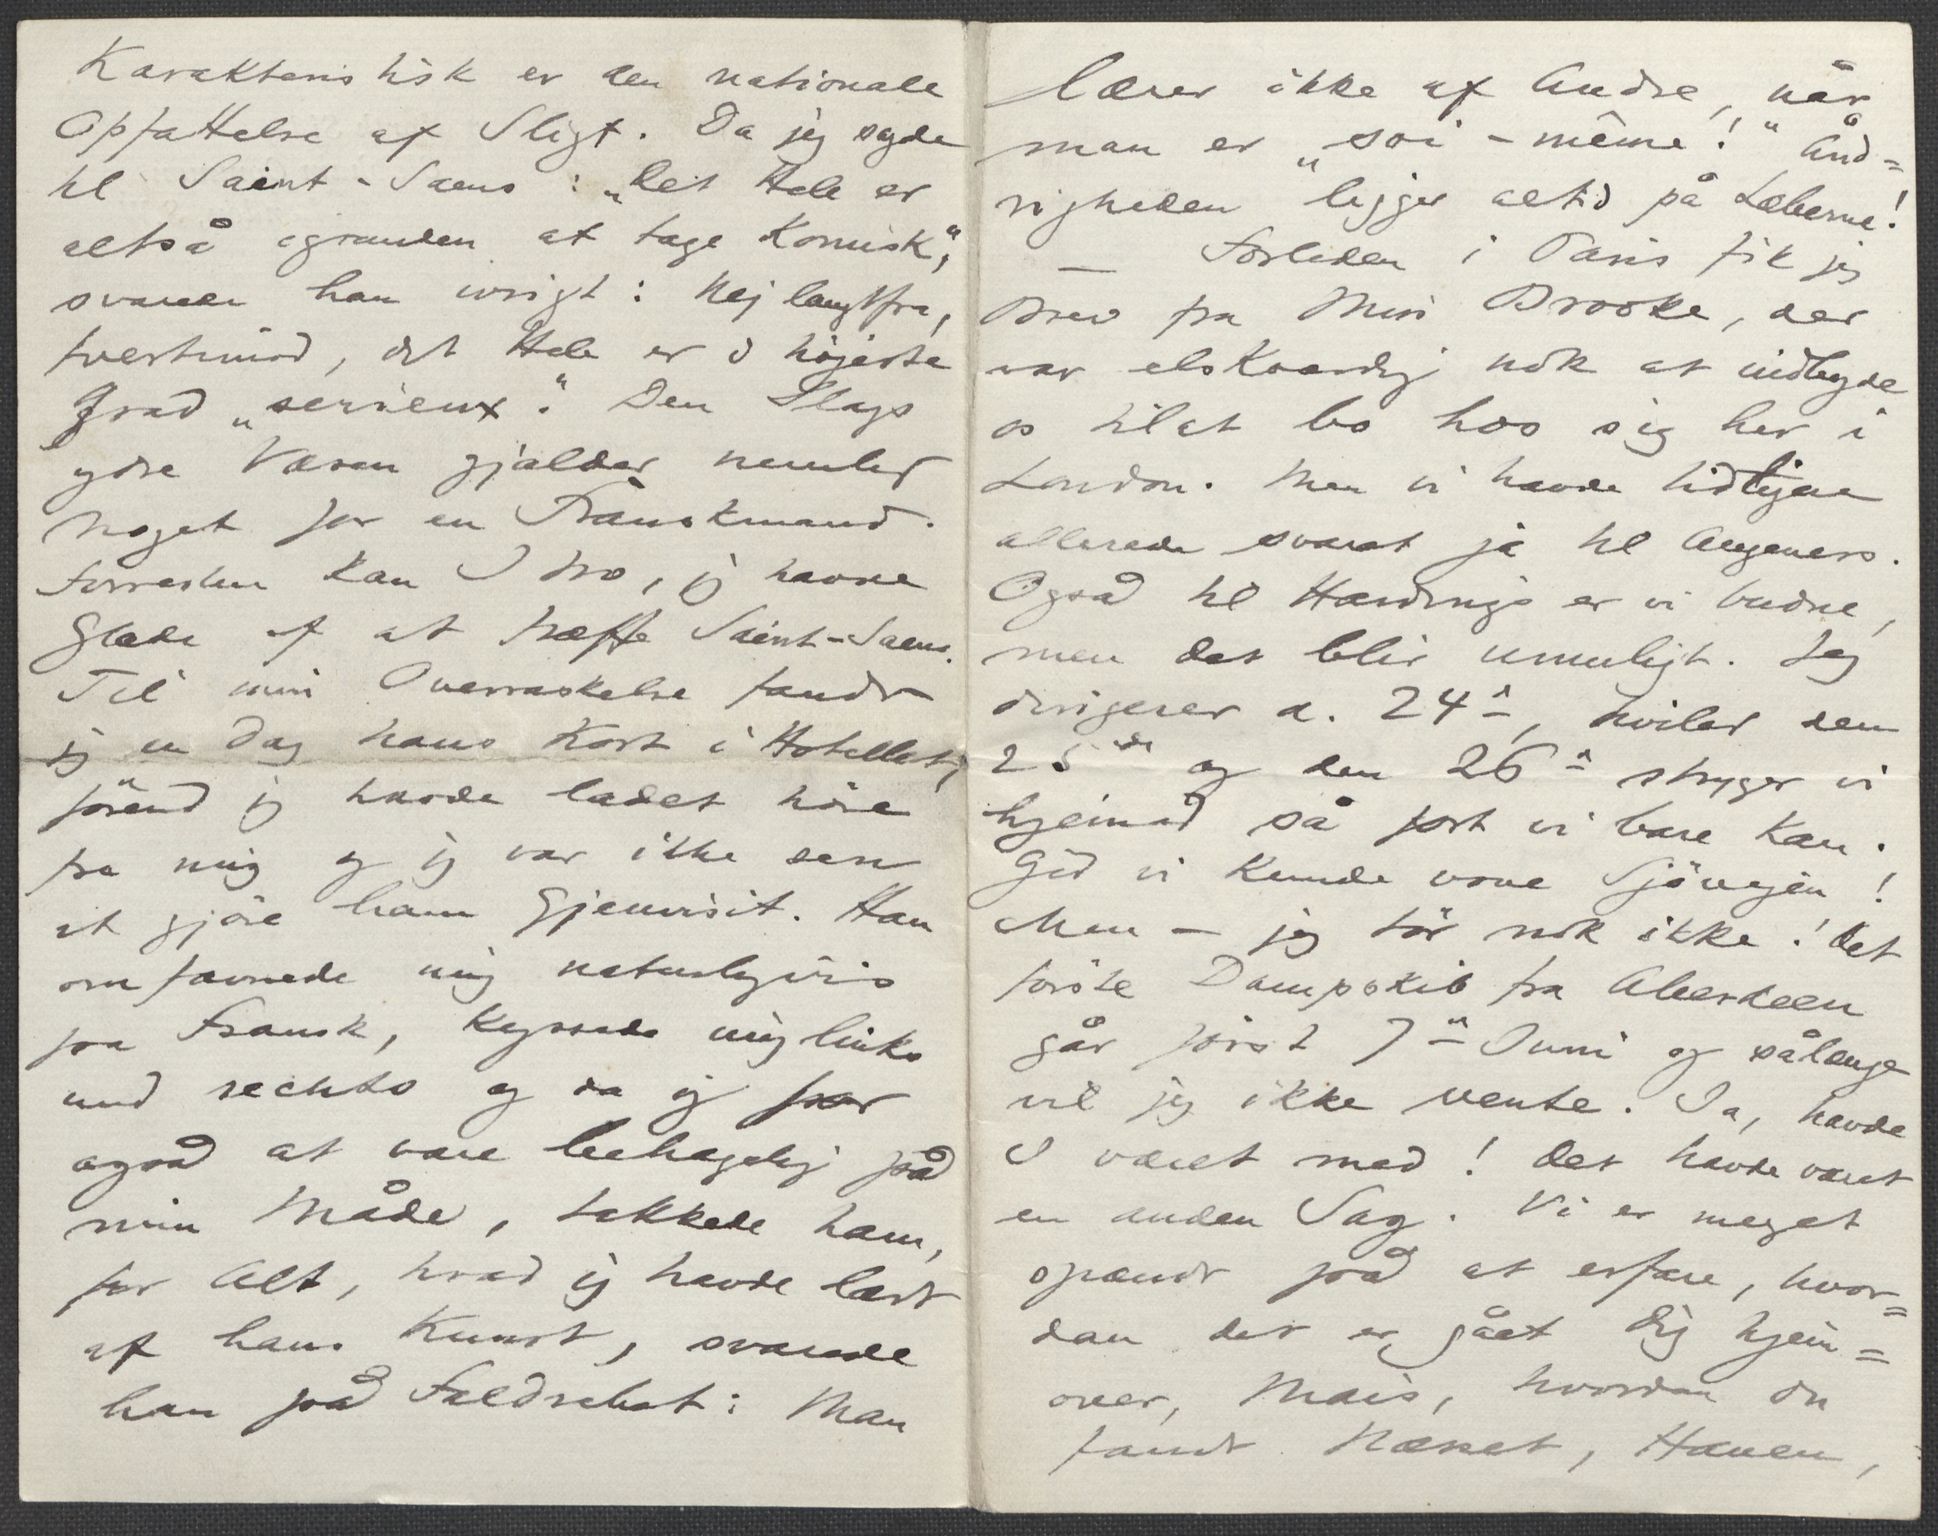 Karakteristisk er den nationale
Opfattelse af Sligt. Da jeg sagde
til Saint-Saens: „Det Hele er
altså igrunden at tage komisk",
svarede han ivrigt: Nej langtfra,
tvertimod, det Hele er i höjeste
Grad „serieux". Den Slags
ydre Væsen gjælder nemlig
Noget for en Franskmand.
Forresten kan I tro, jeg havde
Glæde af at træffe Saint-Saens.
Til min Overraskelse fandt
jeg en Dag hans Kort i Hotellet,
förend jeg havde ladet höre
fra mig og jeg var ikke sen
at gjöre ham Gjenvisit. Han
omfavnede mig naturligvis
paa Fransk, kyssede mig links
und rechts og da jeg for
også at være behagelig på
min Måde, takkede ham,
for Alt, hvad jeg havde lært
af hans Kunst, svarede
han på Faldrebet: Man
lærer ikke af Andre, når
man er „soi-même!" Ånd=
righeden ligger altid på Læberne!
— Forleden i Paris fik jeg
Brev fra Miss Brooke, der
var elskværdig nok at indbyde
os til at bo hos sig her i
London. Men vi havde tidligere
allerede svaret ja til Augeners.
Også til Hardings er vi budne,
men det blir umuligt. Jeg
dirigerer d. 24de, hviler den
25de og den 26de stryger vi
hjemad så fort vi bare kan.
Gid vi kunde vove Sjöveien!
Men — jeg tör nok ikke! Det
förste Dampskib fra Aberdeen
går först 7de Juni og sålænge
vil jeg ikke vente. Ja, havde
I været med! Det havde været
en anden Sag. Vi er meget
spændt på at erfare, hvor=
dan det er gået dig hjem=
over, Mais, hvordan du
fandt Næsset, Haven,